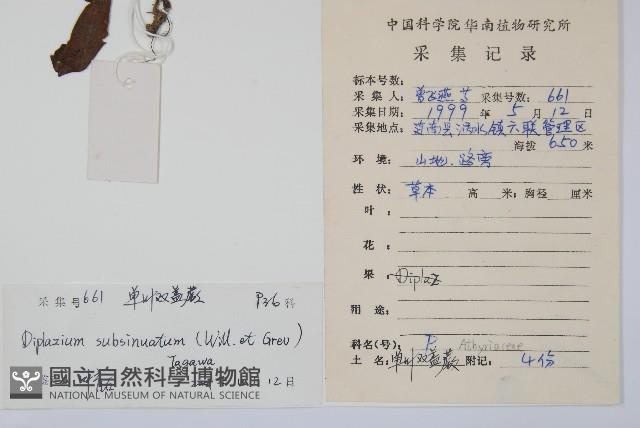 中国科学院华南植物研究所
采集记录
标本号数:
采集人: 曾飞燕等 采集号数: 661
采集日期: 1999 年 5 月 12 日
采集地点: 南县 水镇六联管理区
海拔 650 米
环境: 山地.路旁
性状: 草本 高 米; 胸径 厘米
叶:
花:
果: Diplaz
用途:
科名(号): P. Athyriaceae
土名: 单叶双盖蕨 附记: 4份
采集号 661 单叶双盖蕨 P36 科
Diplazium subsinuatum (Will. et Grev)
Tagawa
12 日
國立自然科學博物館
NATIONAL MUSEUM OF NATURAL SCIENCE